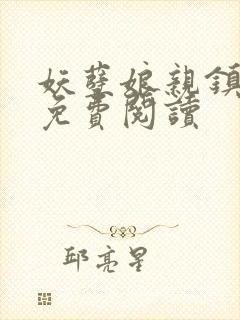 妖孽娘親鎮
免費閱讀
邱亮星